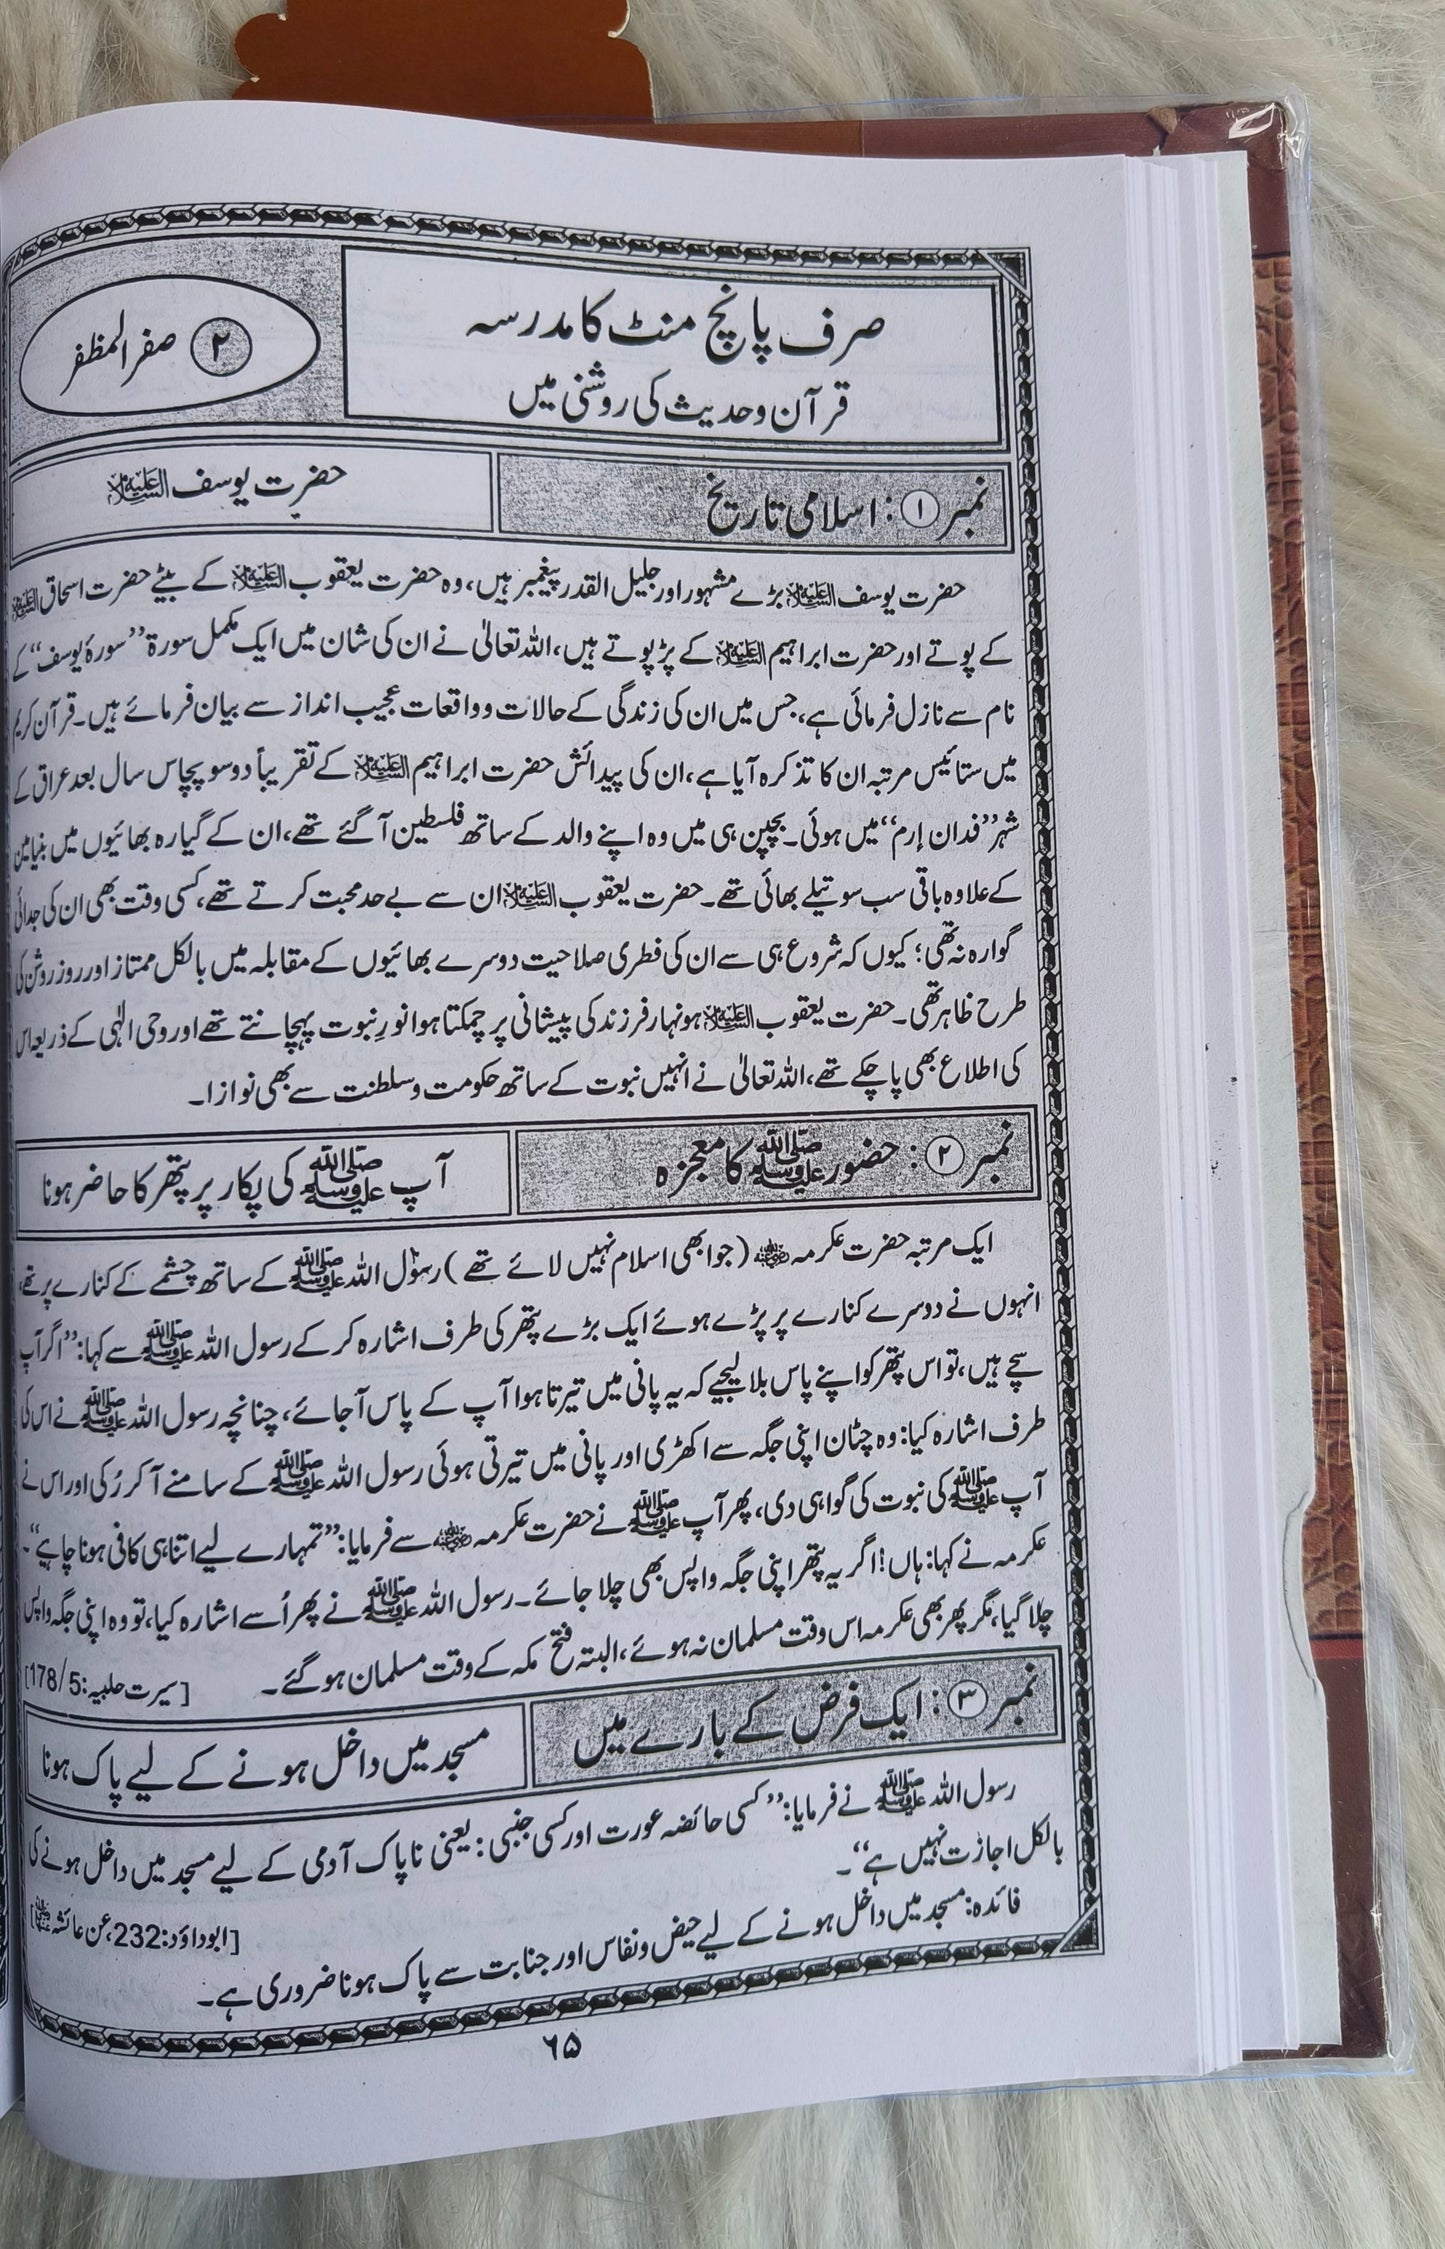 صرف پانچ منٹ کا مدرسہ
قرآن وحدیث کی روشنی میں
۲ صفر المظفر
نمبر ۱ : اسلامی تاریخ
حضرت یوسف علیہ السلام
حضرت یوسف علیہ السلام بڑے مشہور اور جلیل القدر پیغمبر ہیں، وہ حضرت یعقوب علیہ السلام کے بیٹے حضرت اسحاق علیہ السلام
کے پوتے اور حضرت ابراہیم علیہ السلام کے پڑپوتے ہیں، اللہ تعالیٰ نے ان کی شان میں ایک مکمل سورۃ ”سورۂ یوسف“ کے
نام سے نازل فرمائی ہے، جس میں ان کی زندگی کے حالات و واقعات عجیب انداز سے بیان فرمائے ہیں۔ قرآن کریم
میں ستائیس مرتبہ ان کا تذکرہ آیا ہے، ان کی پیدائش حضرت ابراہیم علیہ السلام کے تقریباً دو سو پچاس سال بعد عراق کے
شہر ”فدان اِرم“ میں ہوئی۔ بچپن ہی میں وہ اپنے والد کے ساتھ فلسطین آگئے تھے، ان کے گیارہ بھائیوں میں بنیامین
کے علاوہ باقی سب سوتیلے بھائی تھے۔ حضرت یعقوب علیہ السلام ان سے بے حد محبت کرتے تھے، کسی وقت بھی ان کی جدائی
گوارہ نہ تھی؛ کیوں کہ شروع ہی سے ان کی فطری صلاحیت دوسرے بھائیوں کے مقابلہ میں بالکل ممتاز اور روز روشن کی
طرح ظاہر تھی۔ حضرت یعقوب علیہ السلام ہونہار فرزند کی پیشانی پر چمکتا ہوا نورِ نبوت پہچانتے تھے اور وحی الٰہی کے ذریعہ اس
کی اطلاع بھی پا چکے تھے، اللہ تعالیٰ نے انہیں نبوت کے ساتھ حکومت و سلطنت سے بھی نوازا۔
نمبر ۲ : حضور ﷺ کا معجزہ
آپ ﷺ کی پکار پر پتھر کا حاضر ہونا
ایک مرتبہ حضرت عکرمہ رضی اللہ عنہ (جو ابھی اسلام نہیں لائے تھے) رسول اللہ ﷺ کے ساتھ چشمے کے کنارے پر تھے،
انہوں نے دوسرے کنارے پر پڑے ہوئے ایک بڑے پتھر کی طرف اشارہ کر کے رسول اللہ ﷺ سے کہا: ”اگر آپ
سچے ہیں، تو اس پتھر کو اپنے پاس بلا لیجیے کہ یہ پانی میں تیرتا ہوا آپ کے پاس آ جائے، چنانچہ رسول اللہ ﷺ نے اس کی
طرف اشارہ کیا: وہ چٹان اپنی جگہ سے اکھڑی اور پانی میں تیرتی ہوئی رسول اللہ ﷺ کے سامنے آ کر رُکی اور اس نے
آپ ﷺ کی نبوت کی گواہی دی، پھر آپ ﷺ نے حضرت عکرمہ رضی اللہ عنہ سے فرمایا: ”تمہارے لیے اتنا ہی کافی ہونا چاہے“۔
عکرمہ نے کہا: ہاں! اگر یہ پتھر اپنی جگہ واپس بھی چلا جائے۔ رسول اللہ ﷺ نے پھر اُسے اشارہ کیا، تو وہ اپنی جگہ واپس
چلا گیا، مگر پھر بھی عکرمہ اس وقت مسلمان نہ ہوئے، البتہ فتح مکہ کے وقت مسلمان ہو گئے۔
[سیرت حلبیہ: 178/5]
نمبر ۳ : ایک فرض کے بارے میں
مسجد میں داخل ہونے کے لیے پاک ہونا
رسول اللہ ﷺ نے فرمایا: ”کسی حائضہ عورت اور کسی جنبی: یعنی ناپاک آدمی کے لیے مسجد میں داخل ہونے کی
بالکل اجازت نہیں ہے“۔
[ابوداؤد: 232، عن عائشہ رضی اللہ عنہا]
فائدہ: مسجد میں داخل ہونے کے لیے حیض و نفاس اور جنابت سے پاک ہونا ضروری ہے۔
۶۵